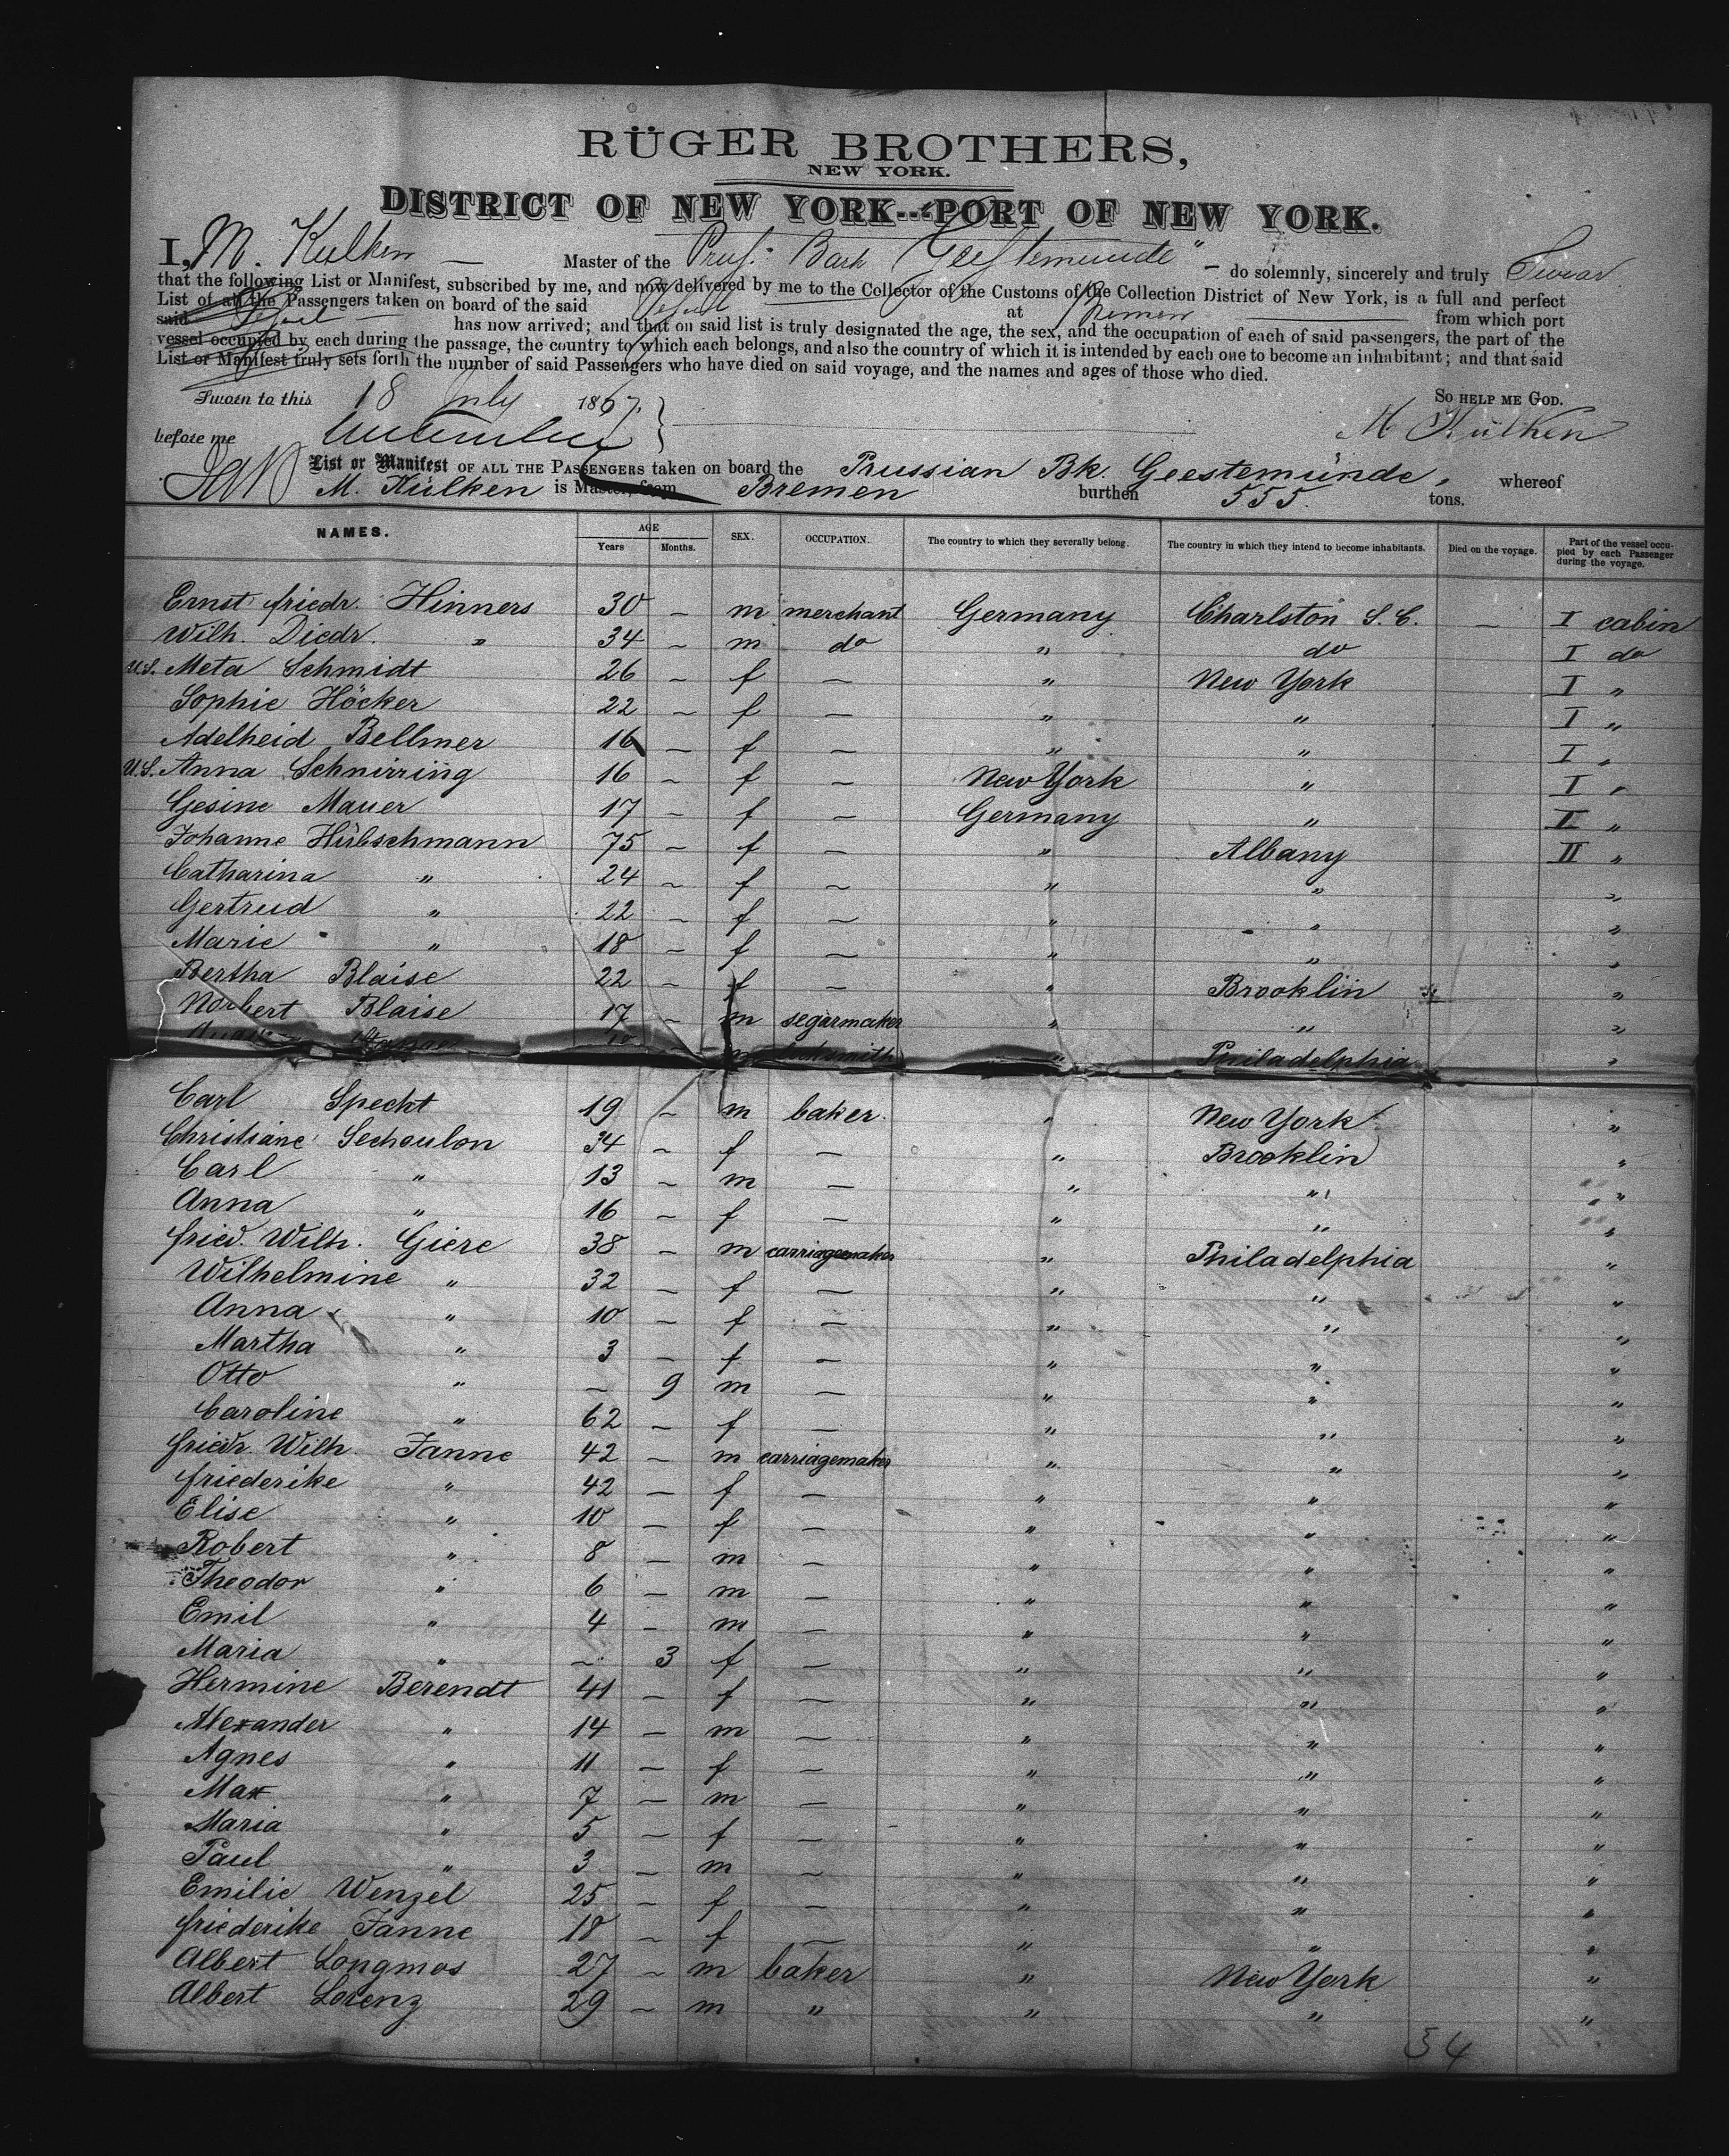 RÜGER BROTHERS,
NEW YORK.
DISTRICT OF NEW YORK--PORT OF NEW YORK.
I, M. Kulken — Master of the Pruss. Bark "Geestemünde" — do solemnly, sincerely and truly Swear
that the following List or Manifest, subscribed by me, and now delivered by me to the Collector of the Customs of the Collection District of New York, is a full and perfect
List of all the Passengers taken on board of the said Vessel at Bremen from which port
said Vessel has now arrived; and that on said list is truly designated the age, the sex, and the occupation of each of said passengers, the part of the
vessel occupied by each during the passage, the country to which each belongs, and also the country of which it is intended by each one to become an inhabitant; and that said
List or Manifest truly sets forth the number of said Passengers who have died on said voyage, and the names and ages of those who died.
Sworn to this 18 July 1867. SO HELP ME GOD.
before me M Külken
List or Manifest OF ALL THE PASSENGERS taken on board the Prussian Bk. Geestemünde, whereof
M. Külken is Master, from Bremen burthen 555. tons.
NAMES. AGE Years Months. SEX. OCCUPATION. The country to which they severally belong. The country in which they intend to become inhabitants. Died on the voyage. Part of the vessel occupied by each Passenger during the voyage.
Ernst friedr. Hinners 30 — m merchant Germany Charlston S. C. — I cabin
Wilh. Diedr. " 34 — m do " do I do
U.S. Meta Schmidt 26 — f — " New York I "
Sophie Höcker 22 — f — " " I "
Adelheid Bellmer 16 — f — " " I "
U.S. Anna Schnirring 16 — f — New York " I "
Gesine Mauer 17 — f — Germany " II "
Johanne Hübschmann 75 — f — " Albany II "
Catharina " 24 — f — " " "
Gertrud " 22 — f — " " "
Marie " 18 — f — " " "
Bertha Blaise 22 — f — " Brooklin "
Norbert Blaise 17 — m segarmaker " " "
m locksmith " Philadelphia "
Carl Specht 19 — m baker. " New York "
Christiane Sechoulon 34 — f — " Brooklin "
Carl " 13 — m — " " "
Anna " 16 — f — " " "
fried. Wilh. Giere 38 — m carriagemaker " Philadelphia "
Wilhelmine " 32 — f — " " "
Anna " 10 — f — " " "
Martha " 3 — f — " " "
Otto " — 9 m — " " "
Caroline " 62 — f — " " "
friedr. Wilh. Janne 42 — m carriagemaker " " "
friederike " 42 — f — " " "
Elise " 10 — f — " " "
Robert " 8 — m — " " "
Theodor " 6 — m — " " "
Emil " 4 — m — " " "
Maria " — 3 f — " " "
Hermine Berendt 41 — f — " " "
Alexander " 14 — m — " " "
Agnes " 11 — f — " " "
Max " 7 — m — " " "
Maria " 5 — f — " " "
Paul " 3 — m — " " "
Emilie Wenzel 25 — f — " " "
friederike Janne 18 — f — " " "
Albert Longmos 27 — m baker " New York "
Albert Lorenz 29 — m " " " "
54